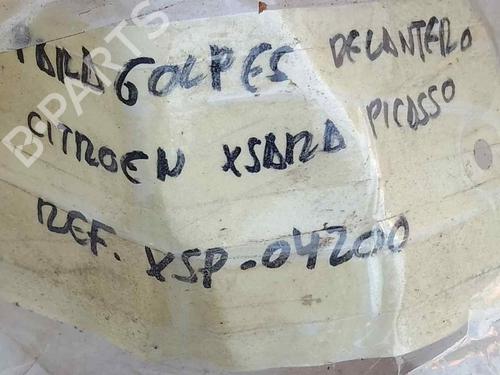 PARAGOLPES DELANTERO
CITROEN XSARA PICASSO
REF. XSP-04200
B-PARTS